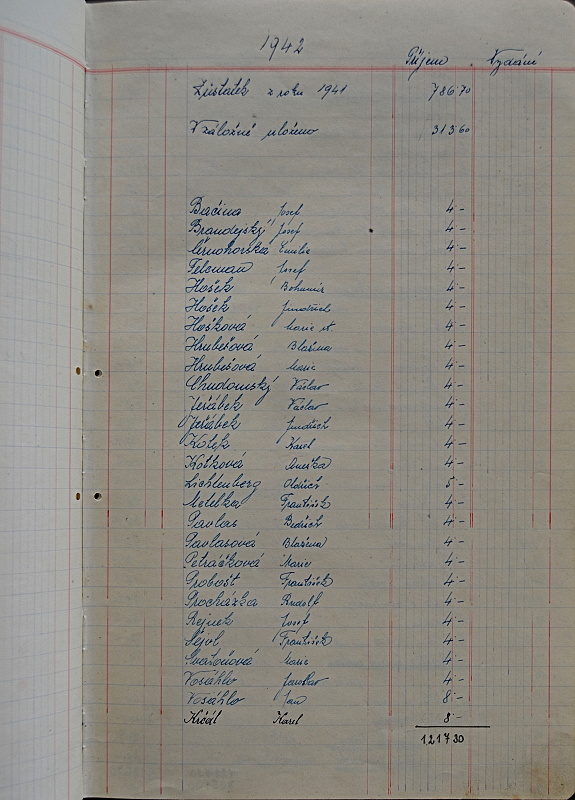 1942
Příjem Vydání
Zůstatek z roku 1941 786·70
Vzáložně uloženo 313·60
Bačina Josef 4·-
Brandejský Josef 4·-
Černohorská Emilie 4·-
Felcman Josef 4·-
Hošek Bohumír 4·-
Hošek Jindřich 4·-
Hošková Marie st 4·-
Hrubešová Blažena 4·-
Hrubešová Marie 4·-
Chudomský Václav 4·-
Jeřábek Václav 4·-
Jeřábek Jindřich 4·-
Kotek Karel 4·-
Kotková Anežka 4·-
Lichtenberg Oldřich 5·-
Metelka František 4·-
Pavlas Bedřich 4·-
Pavlasová Blažena 4·-
Petráčková Marie 4·-
Probošt František 4·-
Procházka Rudolf 4·-
Rejnek Josef 4·-
Sejvl František 4·-
Marie 4·-
Vosáhlo Jaroslav 4·-
Vosáhlo Jan 8·-
Král Karel 8·-
1217 30